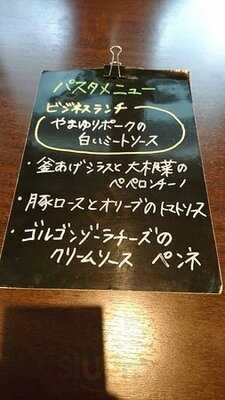 パスタメニュー
ビジネスランチ
やまゆりポークの
白いミートソース
・釜あげシラスと大葉の
ペペロンチーノ
・豚ロースとオリーブのトマトソース
・ゴルゴンゾーラチーズの
クリームソース ペンネ